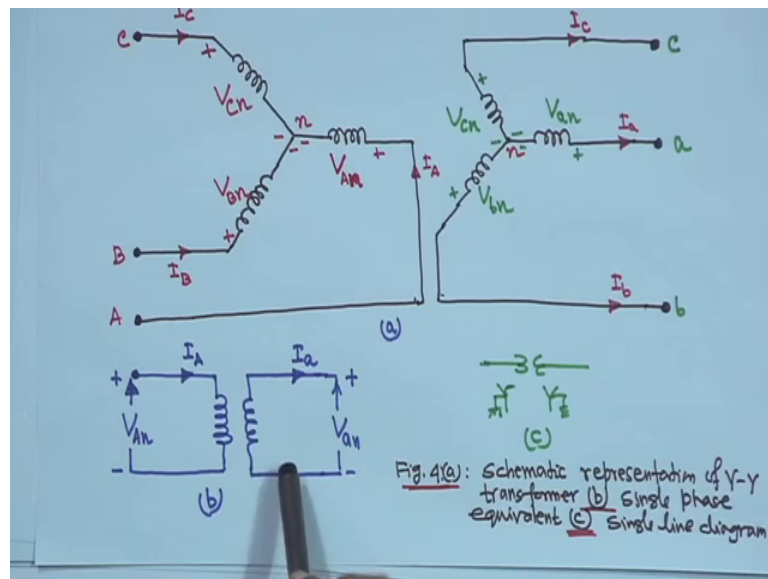 C
I_C
+
V_Cn
n
-
-
-
V_An
+
I_A
V_Bn
+
B
I_B
A
(a)
I_C
C
+
V_Cn
-
-
-
n
V_an
+
I_a
a
+
V_bn
I_b
b
+
I_A
V_An
-
I_a
+
V_an
-
(b)
(c)
Fig. 4:(a): Schematic representation of Y-Y
transformer (b) single phase
equivalent (c) single line diagram